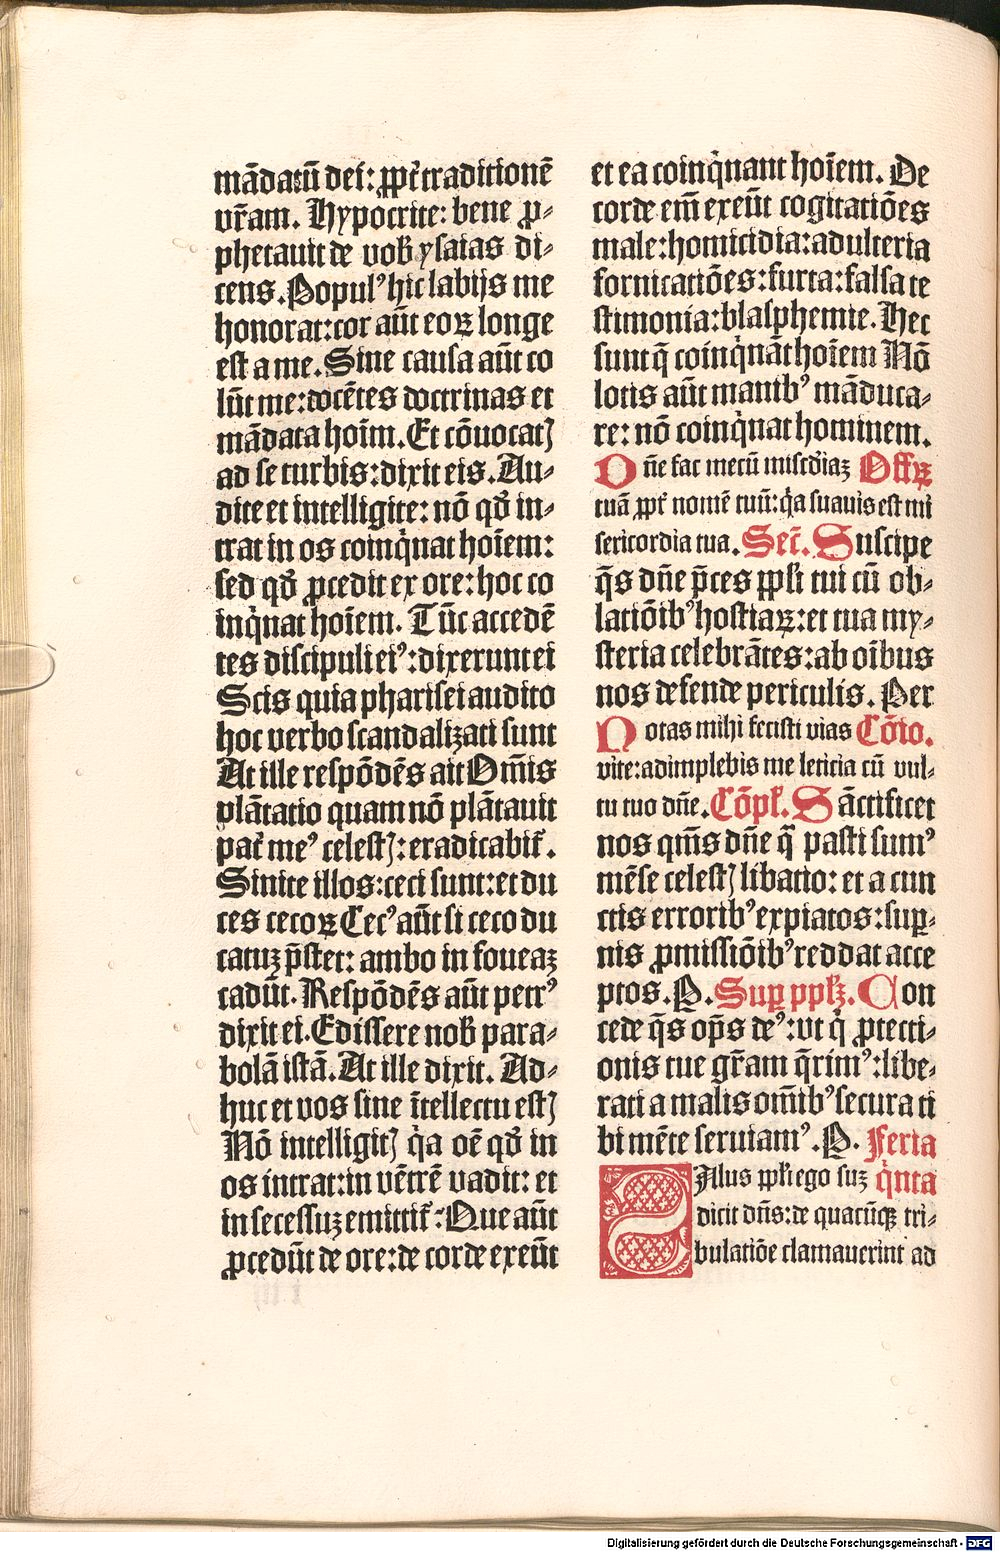 mādatū dei: ꝓpt̄ traditionē
vr̄am. Hypocrite: bene ꝓ⸗
phetauit de vob̄ ysaias di⸗
cens. Popul᾽ hic labijs me
honorat: cor aūt eoꝝ longe
est a me. Sine causa aūt co
lūt me: docētes doctrinas et
mādata hoīm. Et cōuocatꝭ
ad se turbis: dixit eis. Au⸗
dite et intelligite: nō qd̄ in⸗
trat in os coinq̇nat hoīem:
sed qd̄ ꝓcedit ex ore: hoc co
inq̇nat hoīem. Tūc accedē
tes discipuli ei᾽: dixerunt ei
Scis quia pharisei audito
hoc verbo scandalizati sunt
At ille respōdēs ait Om̄is
plātatio quam nō plātauit
pat̄ me᾽ celestꝭ: eradicabit̄.
Sinite illos: ceci sunt: et du
ces cecoꝝ Cec᾽ aūt si ceco du
catuꝫ p̄stet: ambo in foueaꝫ
cadūt. Respōdēs aūt petr᾽
dixit ei. Edissere nob̄ para⸗
bolā istā. At ille dixit. Ad⸗
huc et vos sine ītellectu estꝭ
Nō intelligitꝭ q̇a oē qd̄ in
os intrat: in vētrē vadit: et
in secessuꝫ emittit̄: Que aūt
ꝓcedūt de ore: de corde exeūt
et ea coinq̇nant hoīem. De
corde em̄ exeūt cogitatiōes
male: homicidia: adulteria
fornicatiōes: furta: falsa te
stimonia: blasphemie. Hec
sunt q̄ coinq̇nāt hoīem Nō
lotis aūt manib᾽ māduca⸗
re: nō coinq̇nat hominem.
Dn̄e fac mecū misc̄diaꝫ Offꝝ
tuā ꝓpt̄ nomē tuū: q̇a suauis est mi
sericordia tua. Sec̄. Suscipe
q̄s dn̄e p̄ces ꝓpl̄i tui cū ob⸗
latiōib᾽ hostiaꝝ: et tua my⸗
steria celebrātes: ab oībus
nos defende periculis. Per
Notas mihi fecisti vias Cōīo.
vite: adimplebis me leticia cū vul⸗
tu tuo dn̄e. Cōpl̄. Sāctificet
nos qm̄s dn̄e q̄ pasti sum᾽
mēse celestꝭ libatio: et a cun
ctis errorib᾽ expiatos: suꝑ⸗
nis ꝓmissiōib᾽ reddat acce
ptos. P. Suꝑ pplꝫ. Con
cede q̄s op̄s de᾽: vt q̇ ꝓtecti⸗
onis tue gr̄am q̄rim᾽: libe⸗
rati a malis om̄ib᾽ secura ti
bi mēte seruiam᾽. P. Feria
Salus ꝓpl̄i ego suꝫ q̇nta
dicit dn̄s: de quacūqꝫ tri⸗
bulatiōe clamauerint ad
Digitalisierung gefördert durch die Deutsche Forschungsgemeinschaft - DFG